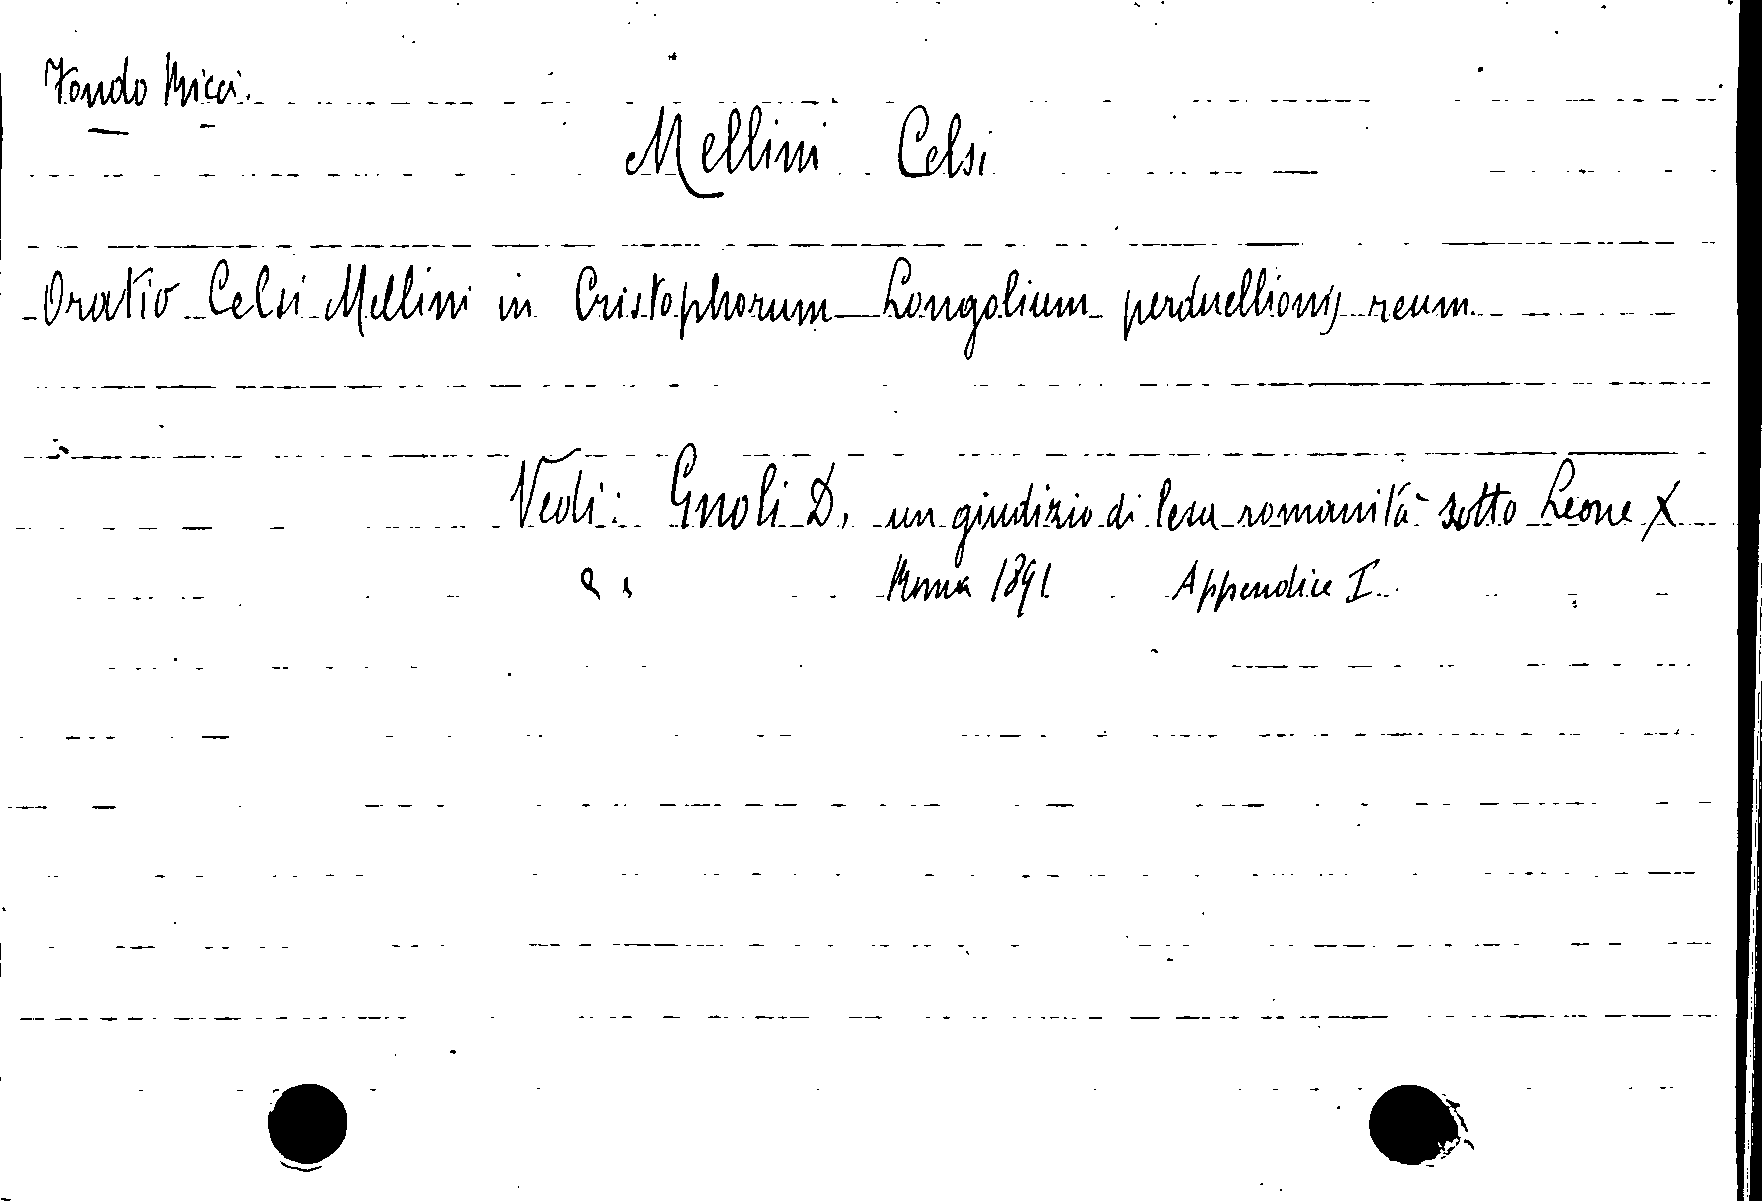 Fondo Ricci.
Mellini Celsi
Oratio Celsi Mellini in Cristophorum Longolium perduellionis reum
Vedi: Gnoli D. un giudizio di lesa romanità sotto Leone X
Roma 1891 Appendice I.